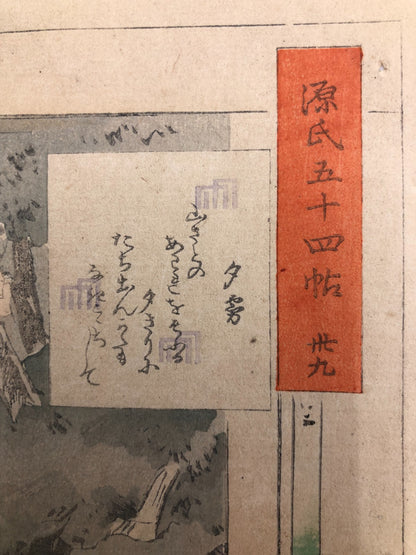 源氏五十四帖 卅九
夕霧
山さとの
あはれをそふる
夕きりに
たち出んかたも
なきこゝちして